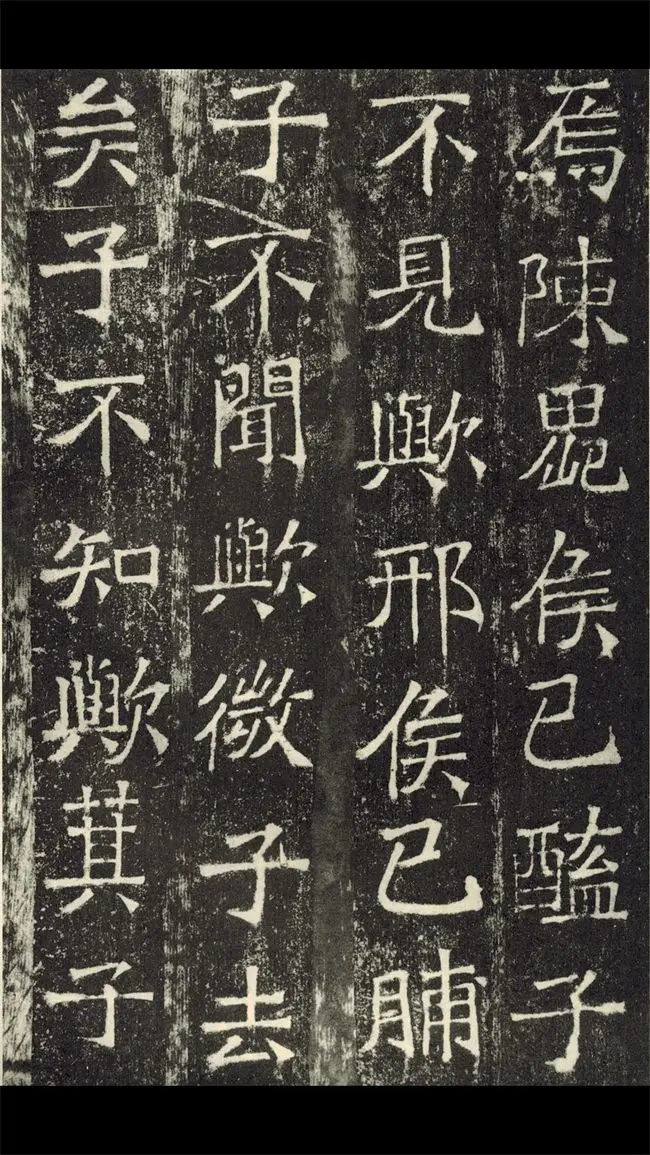 焉陳鬼侯已醢子
不見歟邢侯已脯
子不聞歟微子去
矣子不知歟萁子